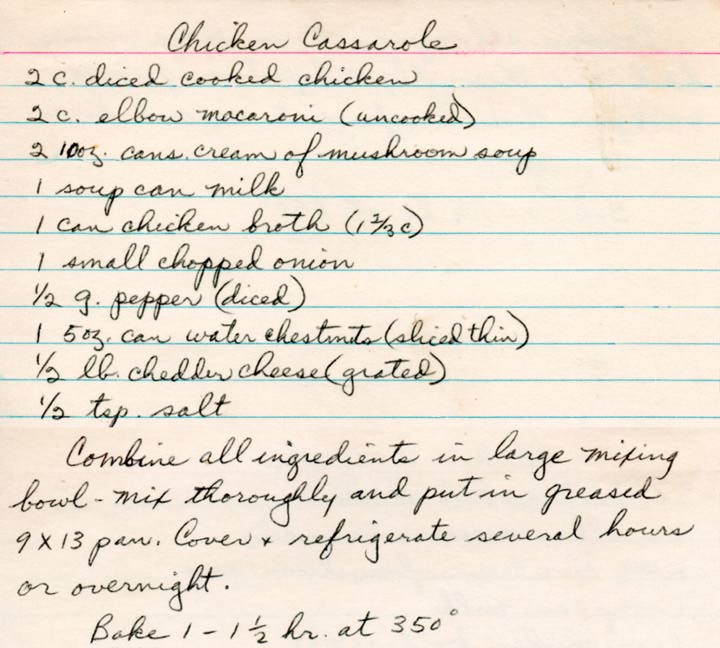 Chicken Cassarole
2 c. diced cooked chicken
2 c. elbow macaroni (uncooked)
2 10oz. cans. cream of mushroom soup
1 soup can milk
1 can chicken broth (1 2/3 c)
1 small chopped onion
1/2 g. pepper (diced)
1 5oz. can water chestnuts (sliced thin)
1/2 lb. chedder cheese (grated)
1/2 tsp. salt
Combine all ingredients in large mixing
bowl - mix thoroughly and put in greased
9 X 13 pan. Cover + refrigerate several hours
or overnight.
Bake 1 - 1 1/2 hr. at 350°